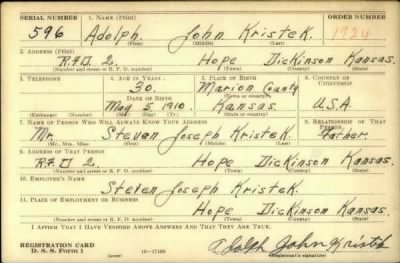 SERIAL NUMBER 1. NAME (Print) ORDER NUMBER
596 Adolph John Kristek 1924
(First) (Middle) (Last)
2. ADDRESS (Print)
R.F.D. 2. Hope Dickinson Kansas.
(Number and street or R. F. D. number) (Town) (County) (State)
3. TELEPHONE 4. AGE IN YEARS 5. PLACE OF BIRTH 6. COUNTRY OF CITIZENSHIP
30. Marion County
(Town or county)
DATE OF BIRTH
May 5, 1910. Kansas. U.S.A.
(Exchange) (Number) (Mo.) (Day) (Yr.) (State or country)
7. NAME OF PERSON WHO WILL ALWAYS KNOW YOUR ADDRESS 8. RELATIONSHIP OF THAT PERSON
Mr. Steven Joseph Kristek. Father.
(Mr., Mrs., Miss) (First) (Middle) (Last)
9. ADDRESS OF THAT PERSON
R.F.D. 2. Hope Dickinson Kansas.
(Number and street or R. F. D. number) (Town) (County) (State)
10. EMPLOYER'S NAME
Steven Joseph Kristek.
11. PLACE OF EMPLOYMENT OR BUSINESS
Hope Dickinson Kansas.
(Number and street or R. F. D. number) (Town) (County) (State)
I AFFIRM THAT I HAVE VERIFIED ABOVE ANSWERS AND THAT THEY ARE TRUE.
REGISTRATION CARD
D. S. S. Form 1 (over) 16—17105 Adolph John Kristek
(Registrant's signature)